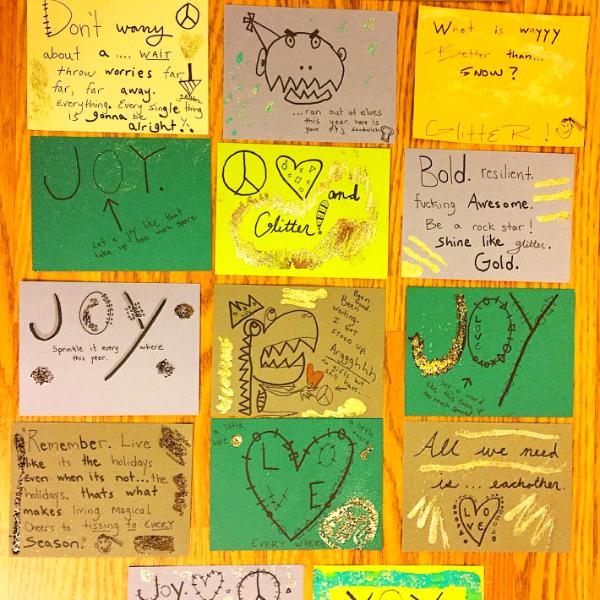 Don't worry
about a .... WAIT
throw worries far
far, far away.
Everything. Every single thing
is gonna be
alright!
...ran out of elves
this year. here is
your pbj sandwich
What is wayyy
Better than...
SNOW?
GlittER!
JOY.
Let a joy like that
take up too much space
and
Glitter
Bold. resilient.
fucking Awesome.
Be a rock star!
shine like glitter.
Gold.
JOY
Sprinkle it every where
this year.
Been
Good.
Been
waiting.
I got
stood up.
Arggghhh
no gifts but
still have...
JOY
LOVE
let a word
like this take up
too much space
"Remember. Live
like its the holidays
even when its not...the
holidays. thats what
makes living magical
Cheers to tissing to EVERY
Season."
a little
here
a little
LOVE
EVERY WHERE
All we need
is ... eachother.
LOVE
JOY.
JOY